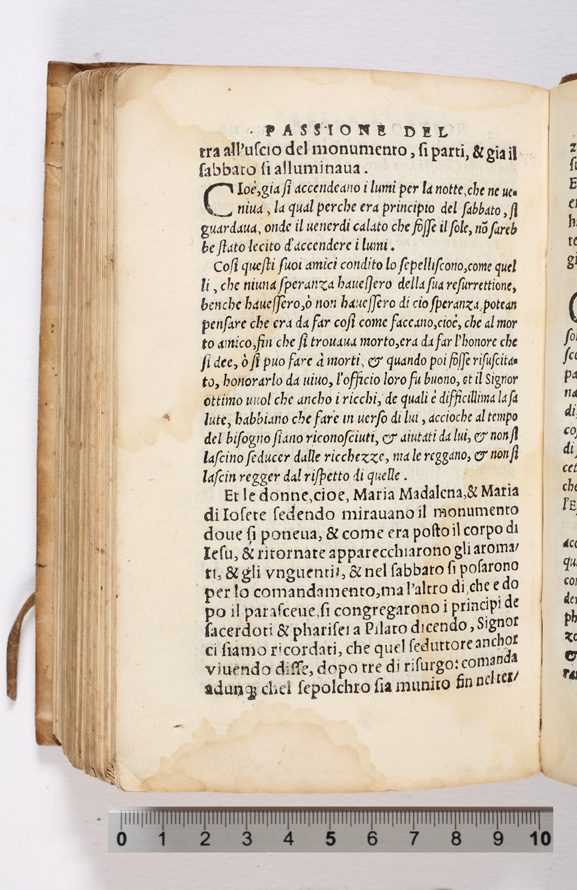 PASSIONE DEL
tra all'uscio del monumento, si parti, & gia il
sabbato si alluminaua.
CIoè, gia si accendeano i lumi per la notte, che ne ue-
niua, la qual perche era principio del sabbato, si
guardaua, onde il uenerdi calato che fosse il sole, nõ sareb
be stato lecito d'accendere i lumi.
Cosi questi suoi amici condito lo sepelliscono, come quel
li, che niuna speranza hauessero della sua resurrettione,
benche hauessero, ò non hauessero di cio speranza, potean
pensare che era da far cosi come faceano, cioè, che al mor
to amico, fin che si trouaua morto, era da far l'honore che
si dee, ò si puo fare à morti, & quando poi fosse risuscita-
to, honorarlo da uiuo, l'officio loro fu buono, et il Signor
ottimo uuol che ancho i ricchi, de quali è difficillima la sa
lute, habbiano che fare in uerso di lui, accioche al tempo
del bisogno siano riconosciuti, & aiutati da lui, & non si
lascino seducer dalle ricchezze, ma le reggano, & non si
lascin regger dal rispetto di quelle.
Et le donne, cioe, Maria Madalena, & Maria
di Iosete sedendo mirauano il monumento
doue si poneua, & come era posto il corpo di
Iesu, & ritornate apparecchiarono gli aroma/
ti, & gli vnguenti, & nel sabbato si posarono
per lo comandamento, ma l'altro di, che e do
po il parasceue, si congregarono i principi de
sacerdoti & pharisei a Pilato dicendo, Signor
ci siamo ricordati, che quel seduttore anchor
viuendo disse, dopo tre di risurgo: comanda
adunq; chel sepolchro sia munito fin nel ter/
0 1 2 3 4 5 6 7 8 9 10